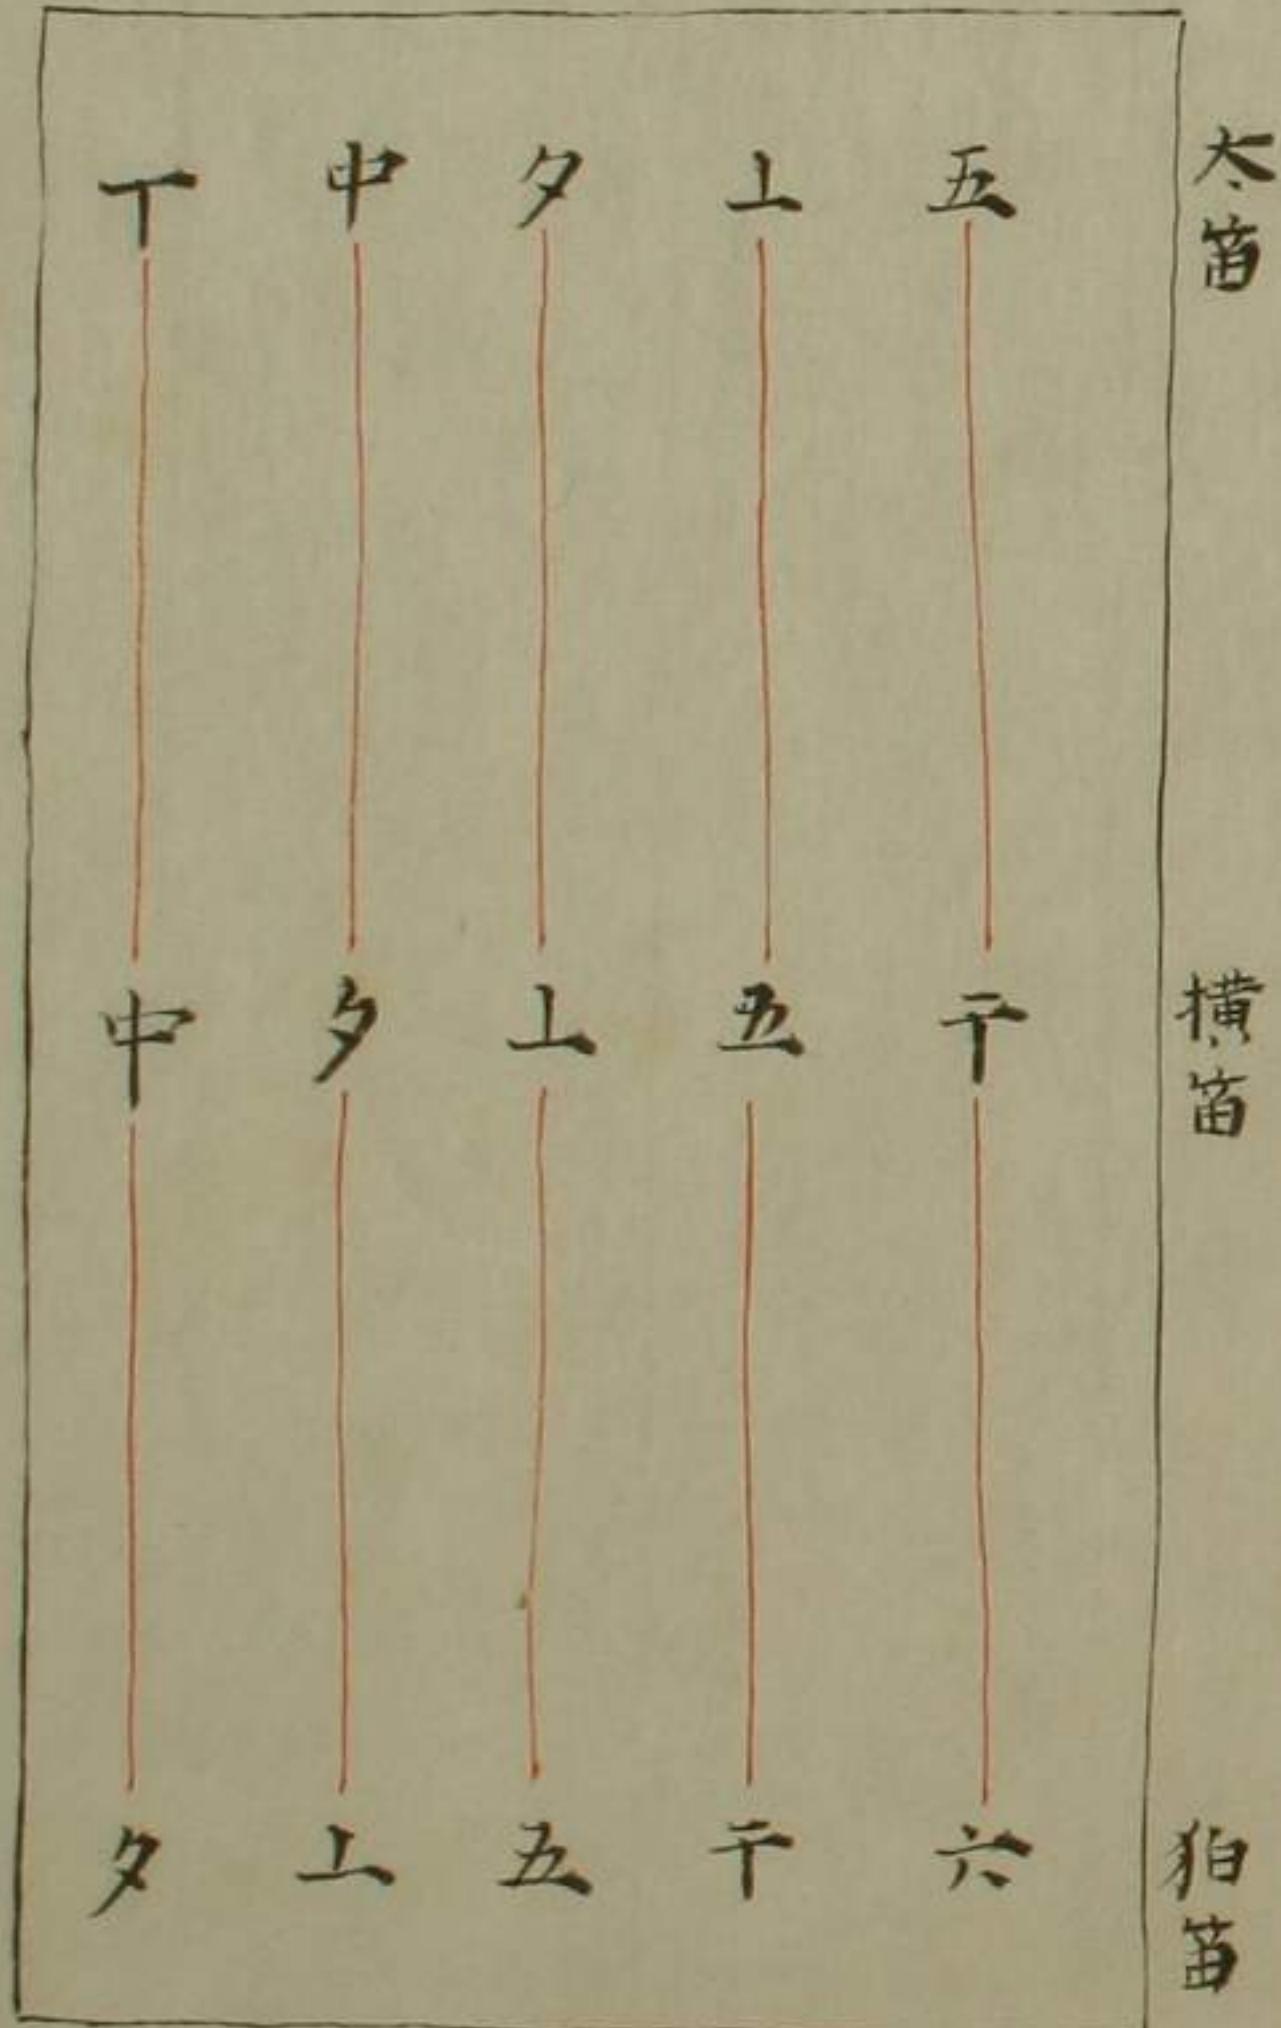 太笛 横笛 狛笛
五 干 六
丄 五 干
夕 丄 五
中 夕 丄
丅 中 夕